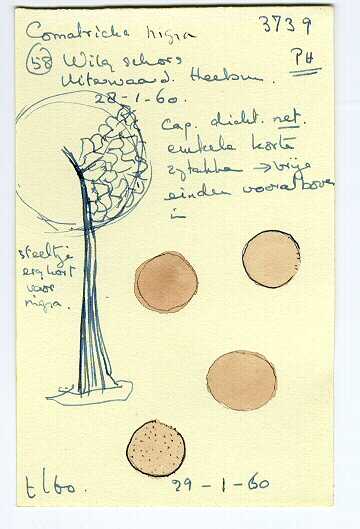 Comatricha nigra 3739
(58) Wilg schors PH
Uiterwaard. Heelsum.
28-1-60.
Cap. dicht. net.
enkele korte
zytakken → vrije
einden vooral boven
in
steeltje
erg kort
voor
nigra.
29-1-60